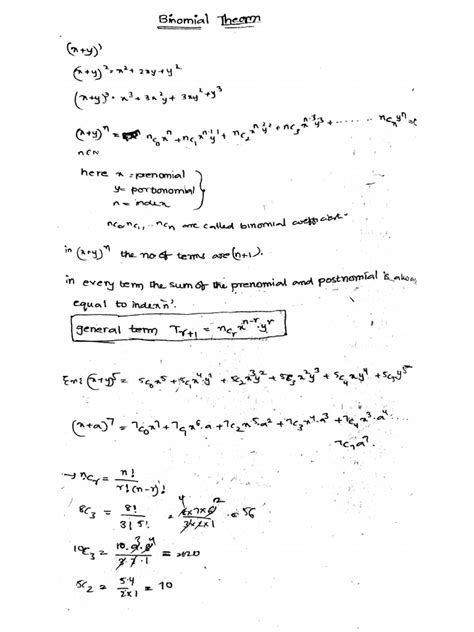 Binomial Theorem
(x+y)¹
(x+y)² = x² + 2xy + y²
(x+y)³ = x³ + 3x²y + 3xy² + y³
(x+y)ⁿ = nC₀xⁿ + nC₁xⁿ⁻¹y¹ + nC₂xⁿ⁻²y² + nC₃xⁿ⁻³y³ + ...... nCₙyⁿ =
n∈N
here x = prenomial
y = portonomial
n = index
nC₀, nC₁, .. nCₙ are called binomial coefficient.
in (x+y)ⁿ the no of terms are (n+1).
in every term the sum of the prenomial and postnomial is alway
equal to index 'n'.
general term Tᵣ₊₁ = nCᵣ xⁿ⁻ʳ.yʳ
Ex: (x+y)⁵ = 5C₀x⁵ + 5C₁x⁴.y¹ + 5C₂x³y² + 5C₃x²y³ + 5C₄xy⁴ + 5C₅y⁵
(x+a)⁷ = 7C₀x⁷ + 7C₁x⁶.a + 7C₂x⁵a² + 7C₃x⁴.a³ + 7C₄x³.a⁴ ...
7C₇a⁷.
→ nCᵣ = n! / r!(n-r)!
8C₃ = 8! / 3! 5! = 8x7x6 / 3x2x1 = 56
10C₃ = 10.9.8 / 3.2.1 = 120
5C₂ = 5.4 / 2x1 = 10